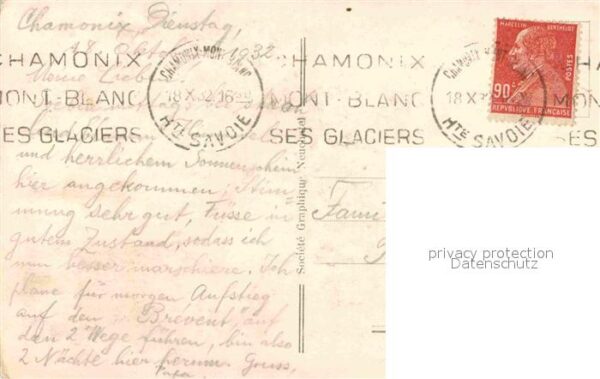 Chamonix, Dienstag,
18. Oktober 1932
Meine Lieben!
und herrlichem Sonnenschein
hier angekommen; Stim
mung sehr gut, Füsse in
gutem Zustand, sodass ich
nun besser marschiere. Ich
plane für morgen Aufstieg
auf den "Brevent", auf
den 2 Wege führen, bin also
2 Nächte hier herum. Gruss,
Papa
CHAMONIX
MONT-BLANC
SES GLACIERS
CHAMONIX-MONT-BLANC
18 X 32 16
HTE SAVOIE
CHAMONIX
MONT-BLANC
SES GLACIERS
CHAMONIX-MONT-BLANC
18 X
HTE SAVOIE
MONT
SES
MARCELIN BERTHELOT
90c
POSTES
REPUBLIQUE FRANÇAISE
Société Graphique Neuchâtel
Fami
privacy protection
Datenschutz